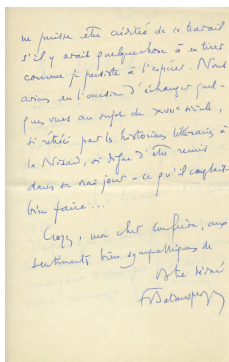 ne puisse être créditée de ce travail
s'il y avait quelque chose à en tirer
comme je persiste à l'espérer. Nous
avions eu l'occasion d'échanger quel-
ques vues au sujet du XVIIe siècle,
si rétréci par les historiens littéraires à
la si digne d'être remis
dans son vrai jour - ce qu'il
bien faire...
Croyez, mon cher confrère, aux
sentiments bien sympathiques de
votre dévoué